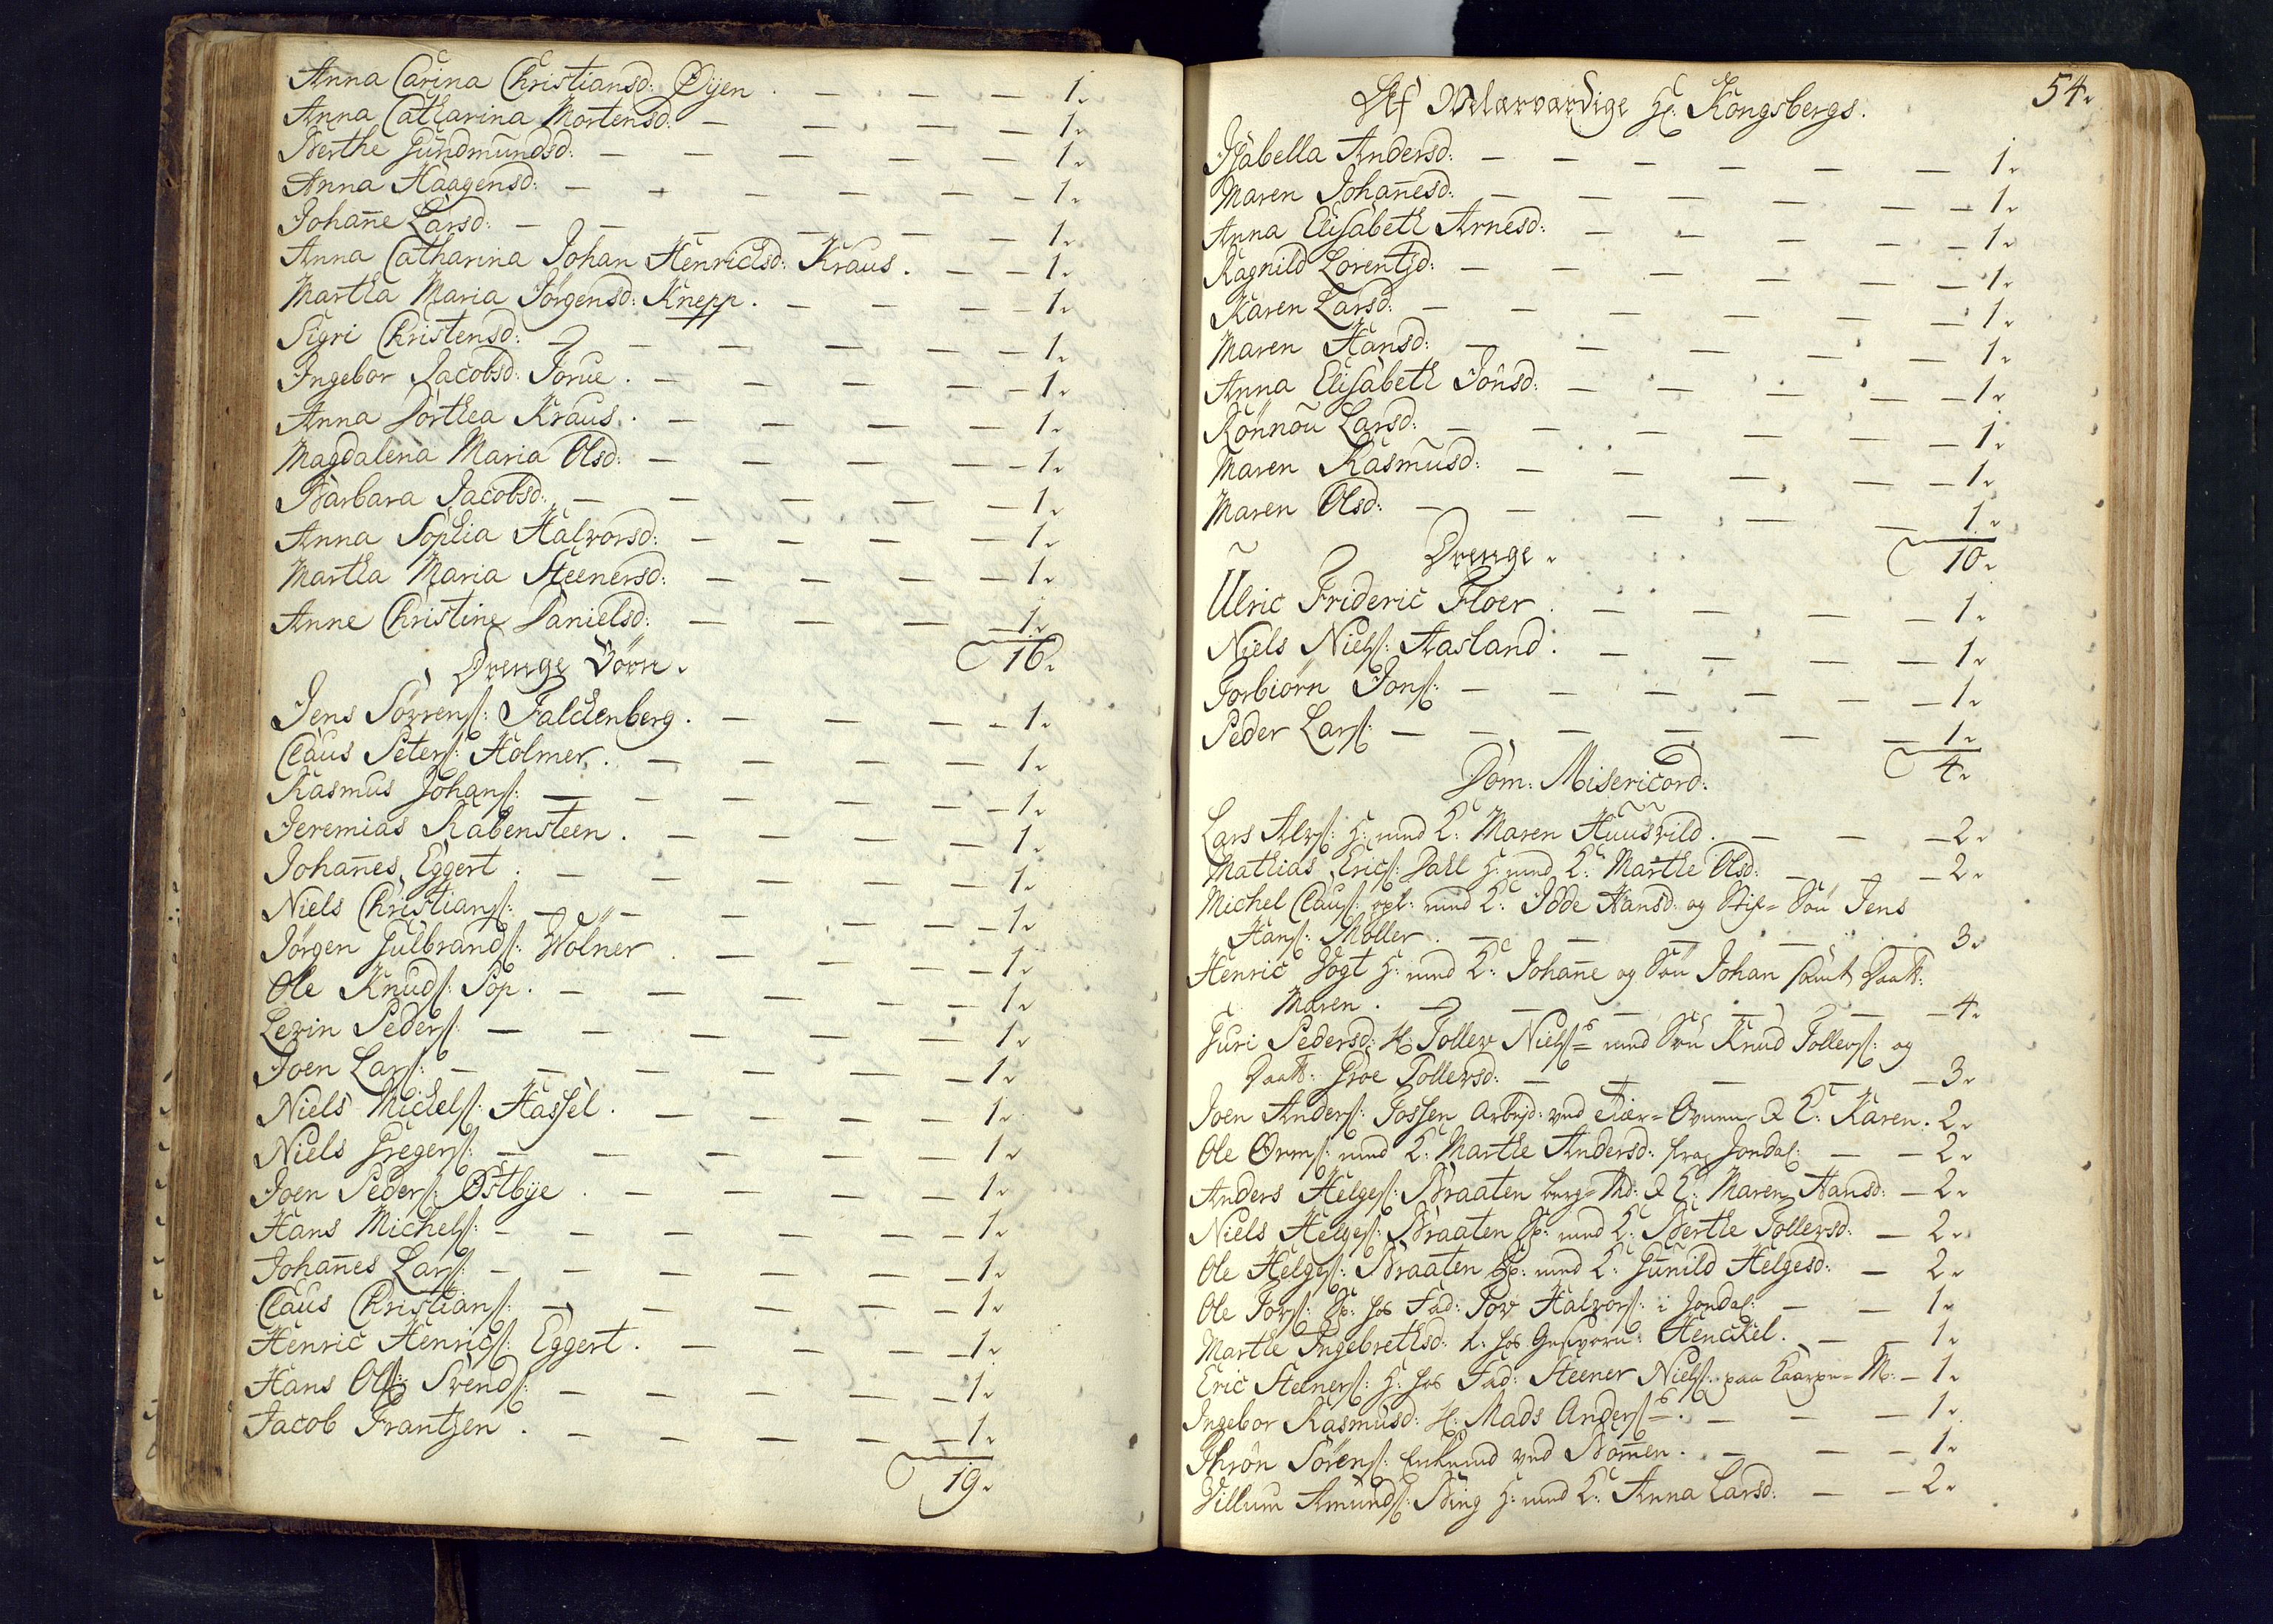 Anna Carina Christiansd: Øyen . — — — 1.
Anna Catharina Mortensd: — — — — 1.
Berthe Gundmundsd: — — — — — 1.
Anna Haagensd: — — — — — — 1.
Johan̄e Larsd: — — — — — — 1.
Anna Catharina Johan Henrichsd: Kraus . — — 1.
Martha Maria Jørgensd: Knepp . — — — 1.
Sigri Christensd: — — — — — — 1.
Ingebor Jacobsd: Torüe . — — — — — 1.
Anna Dorthea Kraus . — — — — 1.
Magdalena Maria Olsd: — — — — — 1.
Barbara Jacobsd: — — — — — 1.
Anna Sophia Halvorsd: — — — — 1.
Martha Maria Steenersd: — — — — 1.
Anne Christine Danielsd: — — — — 1.
Drenge Börn. 16.
Jens Sørrens: Falckenberg . — — — — 1.
Claus Peters: Holmer . — — — — 1.
Rasmus Johans: — — — — — — 1.
Jeremias Rabensteen . — — — — 1.
Johan̄es Eggert . — — — — — 1.
Niels Christians: — — — — — 1.
Jørgen Gulbrands: Wølner . — — — 1.
Ole Knuds: Sop . — — — — — 1.
Levin Peders: — — — — — 1.
Joen Lars: — — — — — — 1.
Niels Michels: Hassel . — — — — 1.
Niels Gregers: — — — — — 1.
Joen Peders: Østbye . — — — — 1.
Hans Michels: — — — — — — 1.
Johan̄es Lars: — — — — — — 1.
Claus Christians: — — — — — 1.
Henric Henrics: Eggert . — — — — 1.
Hans Ols: Svends: — — — — — 1.
Jacob Frantzen . — — — — — 1.
19.
54.
Af Velærværdige Hr: Kongsbergs.
Isabella Andersd: — — — — — — 1.
Maren Johan̄esd: — — — — — — 1.
Anna Elisabeth Arnesd: — — — — — 1.
Ragnild Lorentzd: — — — — — — 1.
Karen Larsd: — — — — — — 1.
Maren Hansd: — — — — — — 1.
Anna Elisabeth Jonsd: — — — — — 1.
Rönnou Larsd: — — — — — — 1.
Maren Rasmusd: — — — — — 1.
Maren Olsd: — — — — — — 1.
Drenge. 10.
Ulric Frideric Floer . — — — — 1.
Niels Niels: Aasland . — — — — 1.
Torbiörn Jons: — — — — — — 1.
Peder Lars: — — — — — — 1.
4.
Dom: Misericord:
Lars Alvs: H: med K: Maren Huusvild . — — — 2.
Mathias Erics: Dahl H: med K: Marthe Olsd: — — — 2.
Michel Claus: opl: med K: Idde Hansd: og Stif=Sön Jens
Hans: Møller . — — — — — 3.
Henric Vogt H: med K: Johan̄e og Sön Johan samt Daatt:
Maren . — — — — — — 4.
Guri Pedersd: H: Tollev Niels: med Sön Knud Tollevs: og
Daatt: Groe Tollevsd: — — — — 3.
Joen Anders: Fossen Arbejd: ved Ovnen & K: Karen . 2.
Ole Orms: med K: Marthe Andersd: fra Jondal: — — 2.
Anders Helges: Braaten & K: Maren Hansd: — 2.
Niels Helges: Braaten med K: Berthe Tollevsd: — 2.
Ole Helges: Braaten med K: Gunild Helgesd: — 2.
Ole Tors: hos Fad: Tov Halvors: i Jondal: — — 1.
Marthe Ingebrethsd: hos Gesvorn: Henckel . — — 1.
Eric Steeners: H: hos Fad: Steener Niels: paa — 1.
Ingebor Rasmusd: H: Mads Anders: — — — 1.
Thrön Sörens: Enkemd ved Bom̄en . — — — 1.
Villum Amunds: Bing H: med K: Anna Larsd: — — 2.